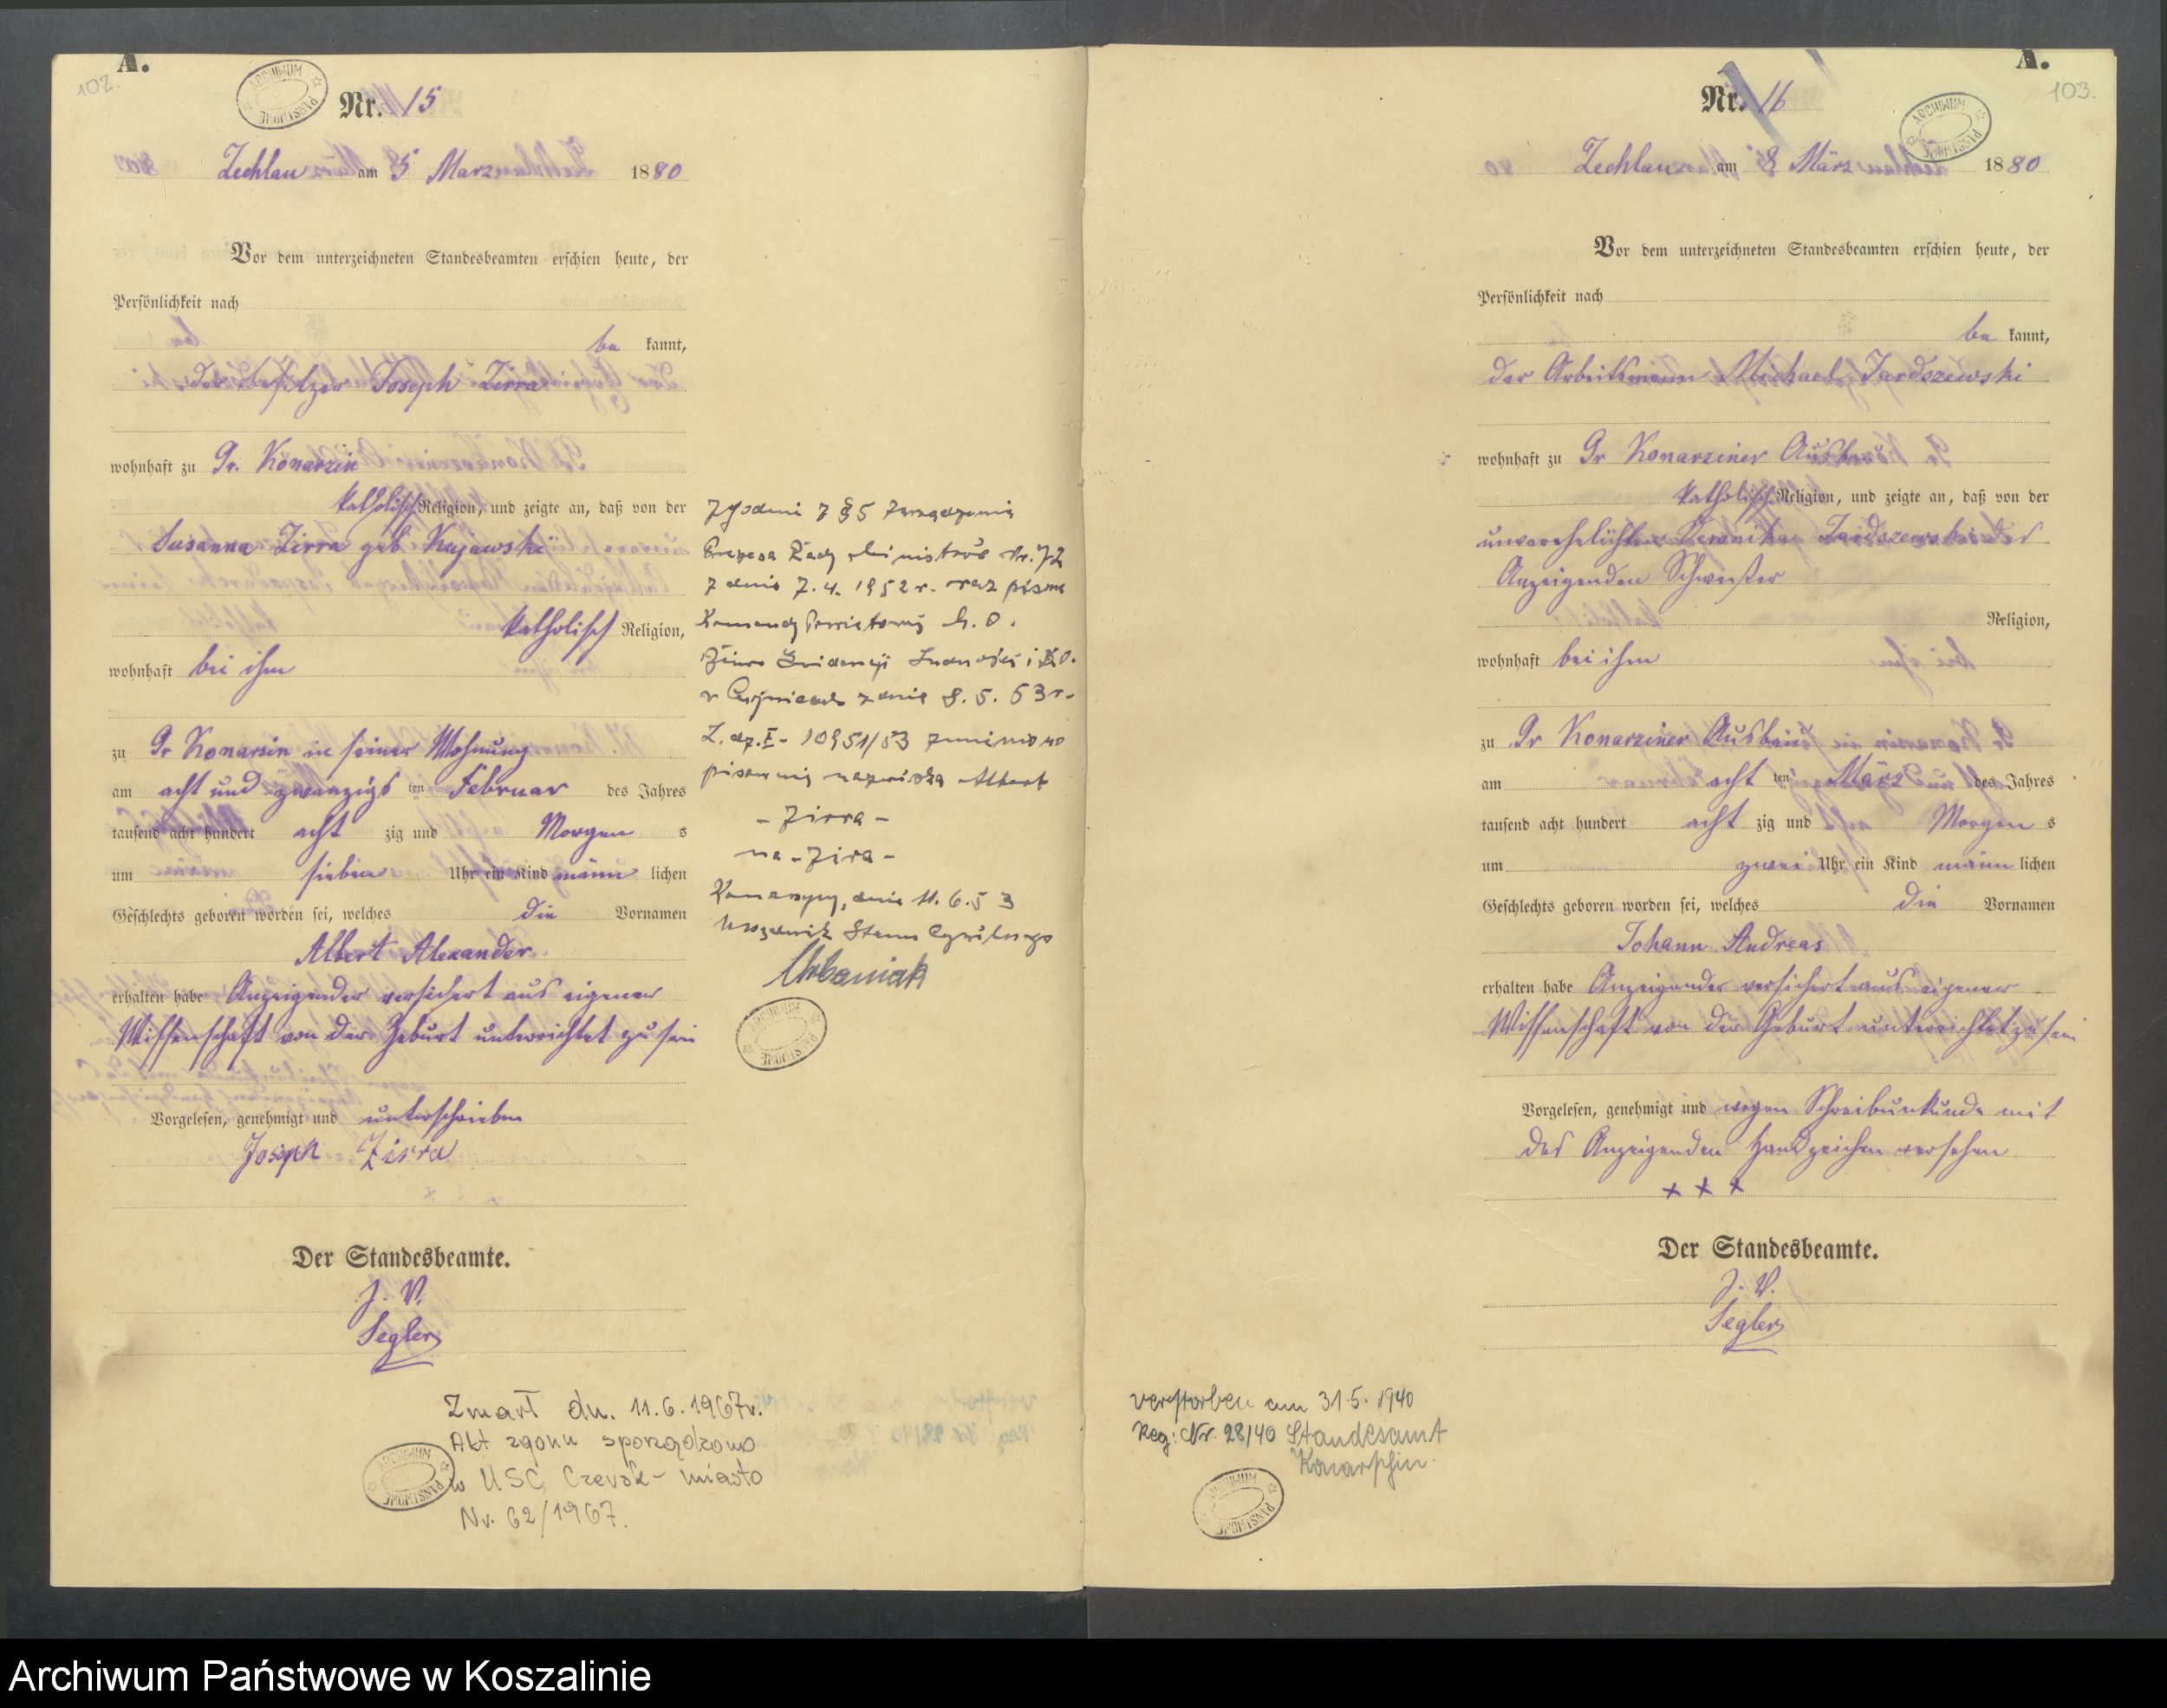 102.
A.
ARCHIWUM PAŃSTWOWE
Nr. 15
Zechlau am 5 Marz 1880
Vor dem unterzeichneten Standesbeamten erschien heute, der
Persönlichkeit nach
be kannt,
der Besitzer Joseph Zirra
wohnhaft zu Gr. Konarzin
katholisch Religion, und zeigte an, daß von der
Susanna Zirra geb Kujawski
katholisch Religion,
wohnhaft bei ihm
zu Gr Konarzin in seiner Wohnung
am acht und zwanzigs ten Februar des Jahres
tausend acht hundert acht zig und Morgen s
um sieben Uhr ein Kind männ lichen
Geschlechts geboren worden sei, welches die Vornamen
Albert Alexander
erhalten habe Anzeigender versichert aus eigener
Wissenschaft von der Geburt unterrichtet zu sein
Vorgelesen, genehmigt und unterschrieben
Joseph Zirra
Der Standesbeamte.
J. V.
Segler
Zgodnie z § 5 Zarządzenia
Prezesa Rady Ministrów Nr. 72
z dnia 7. 4. 1952 r. oraz pisma
Komendy Powiatowej M. O.
Biuro Ewidencji Ludności i D.O.
w Chojnicach z dnia 8. 5. 53 r.
L. dz. I - 10951/53 zmieniono
pisownię nazwiska Albert
- Zirra -
na - Zira -
Konarzyny, dnia 11. 6. 53
Urzędnik Stanu Cywilnego
Urbaniak
ARCHIWUM PAŃSTWOWE
Zmarł dn. 11.6.1967r.
Akt zgonu sporządzono
w USC Czersk - miasto
Nr. 62/1967.
ARCHIWUM PAŃSTWOWE
A.
103.
Nr. 16
ARCHIWUM PAŃSTWOWE
Zechlau am 8 März 1880
Vor dem unterzeichneten Standesbeamten erschien heute, der
Persönlichkeit nach
be kannt,
der Arbeitsmann Michael Jardszewski
wohnhaft zu Gr Konarziner Ausbau
katholisch Religion, und zeigte an, daß von der
unverehelichten Veronika Jardszewski des
Anzeigenden Schwester
Religion,
wohnhaft bei ihm
zu Gr Konarziner Ausbau
am acht ten März des Jahres
tausend acht hundert acht zig und Morgen s
um zwei Uhr ein Kind männ lichen
Geschlechts geboren worden sei, welches die Vornamen
Johann Andreas
erhalten habe Anzeigender versichert aus eigener
Wissenschaft von der Geburt unterrichtet zu sein
Vorgelesen, genehmigt und wegen Schreibunkunde mit
des Anzeigenden Handzeichen versehen
+ + +
Der Standesbeamte.
J. V.
Segler
verstorben am 31.5.1940
Reg: Nr. 28/40 Standesamt
Konarschin.
ARCHIWUM PAŃSTWOWE
Archiwum Państwowe w Koszalinie